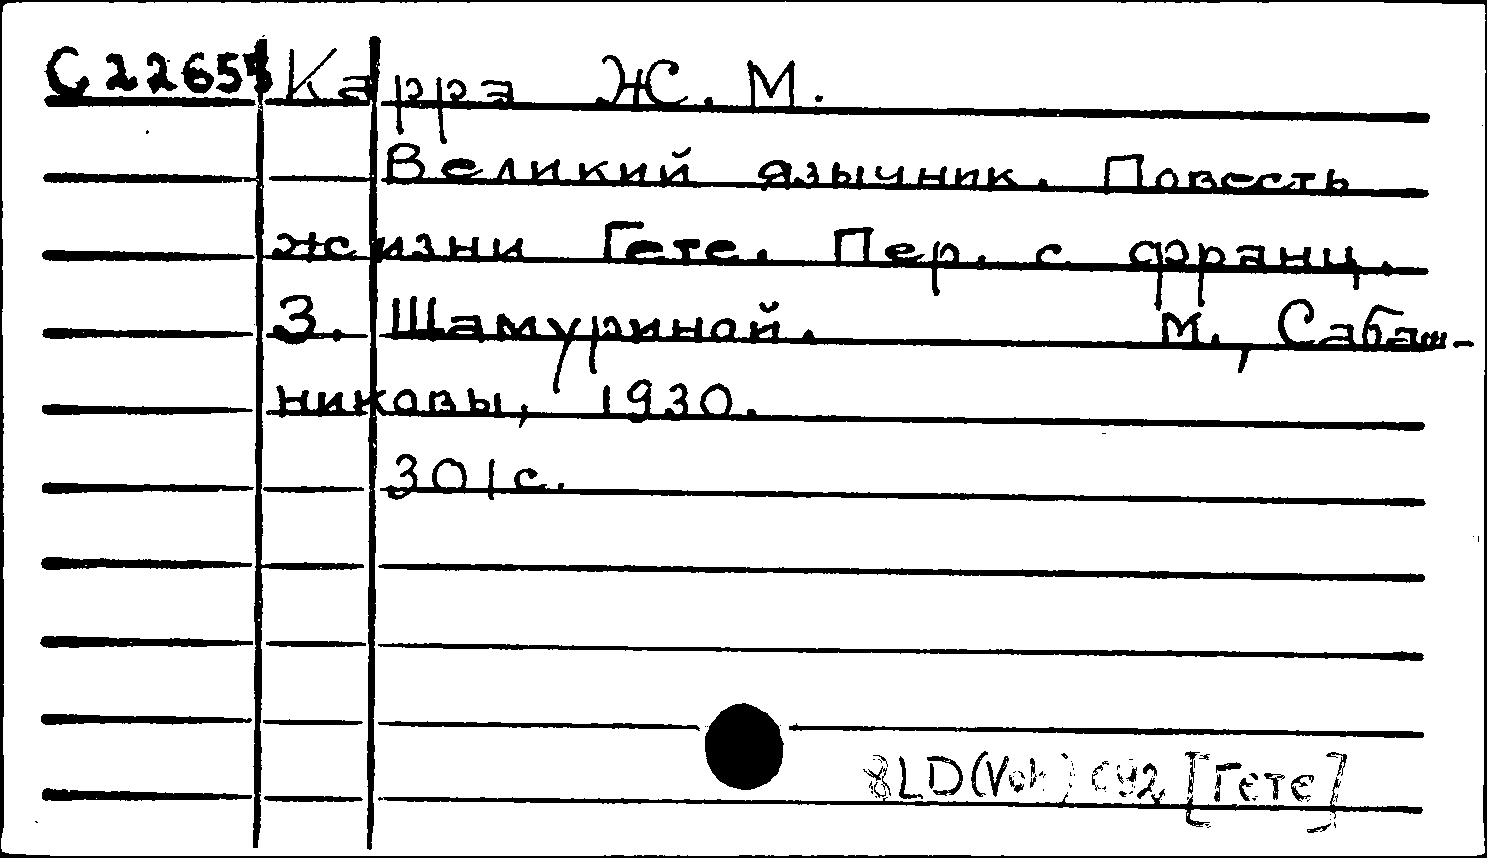 С 22657 Карра Ж. М.
Великий язычник. Повесть
жизни Гете. Пер. с франц.
З. Шамуриной. М., Сабаш-
никовы, 1930.
301 с.
8LD(Voh) с92 [Гете]